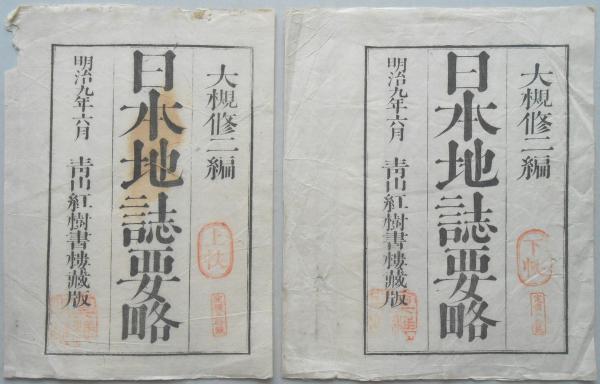 大槻修二編
日本地誌要略
明治九年六月 青山紅樹書樓藏版
上帙
大槻修二編
日本地誌要略
明治九年六月 青山紅樹書樓藏版
下帙